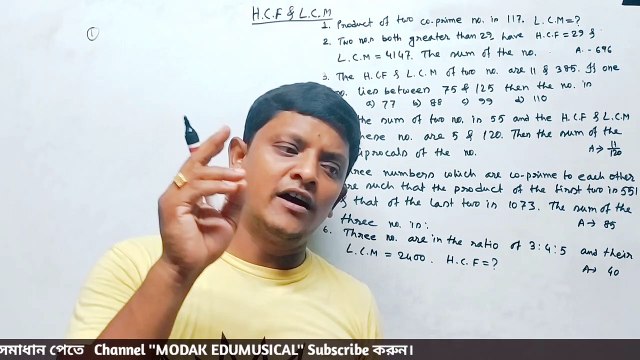 H.C.F & L.C.M
①
1. Product of two co-prime no. in 117. L.C.M=?
2. Two no.s both greater than 29, have H.C.F=29 &
L.C.M = 4147. The sum of the no. A.- 696
3. The H.C.F & L.C.M of two no. are 11 & 385. If one
no. lies between 75 & 125 then the no. in
a) 77 b) 88 c) 99 d) 110
the sum of two no. in 55 and the H.C.F & L.C.M
these no. are 5 & 120. Then the sum of the
iprocals of the no. A→ 11/120
hree numbers which are co-prime to each other
are such that the product of the first two in 551
& that of the last two in 1073. The sum of the
three no. in: A→ 85
6. Three no. are in the ratio of 3:4:5 and their
L.C.M = 2400. H.C.F=? A→ 40
সমাধান পেতে Channel "MODAK EDUMUSICAL" Subscribe করুন।